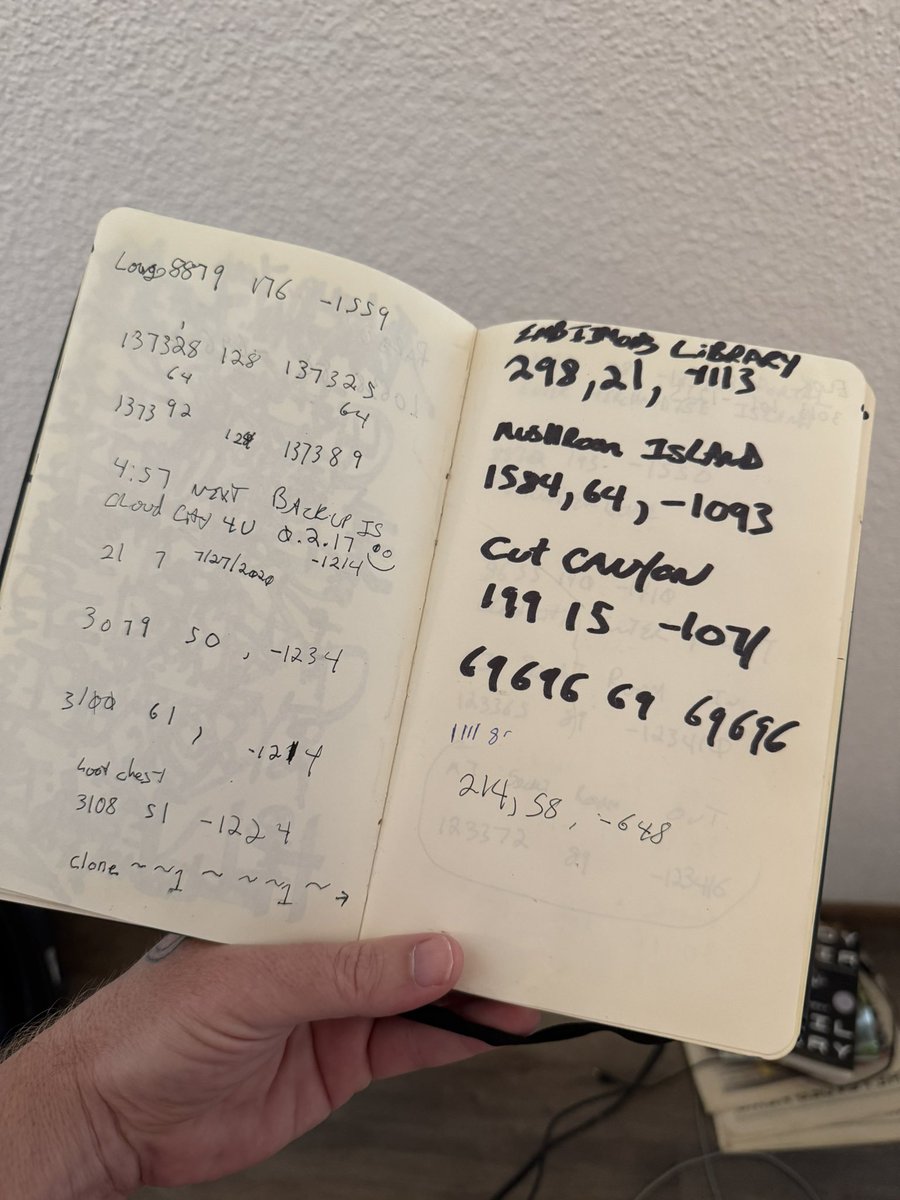 8879 176 -1559
137328 128 137325
64 64
137392 128 137389
4:57 NEXT BACKUP IS
Cloud City 4U 0.2.17
-1214
21 7 7/27/2020
3079 50 , -1234
3100 61 , -1214
Loot chest
3108 51 -1224
clone ~ ~ 1 ~ ~ ~ 1 ~ ~ →
LIBRARY
298, 21, -1113
MUSHROOM ISLAND
1584, 64, -1093
CUT CANYON
199 15 -1071
69696 69 69696
1111 8
214, 58, -648